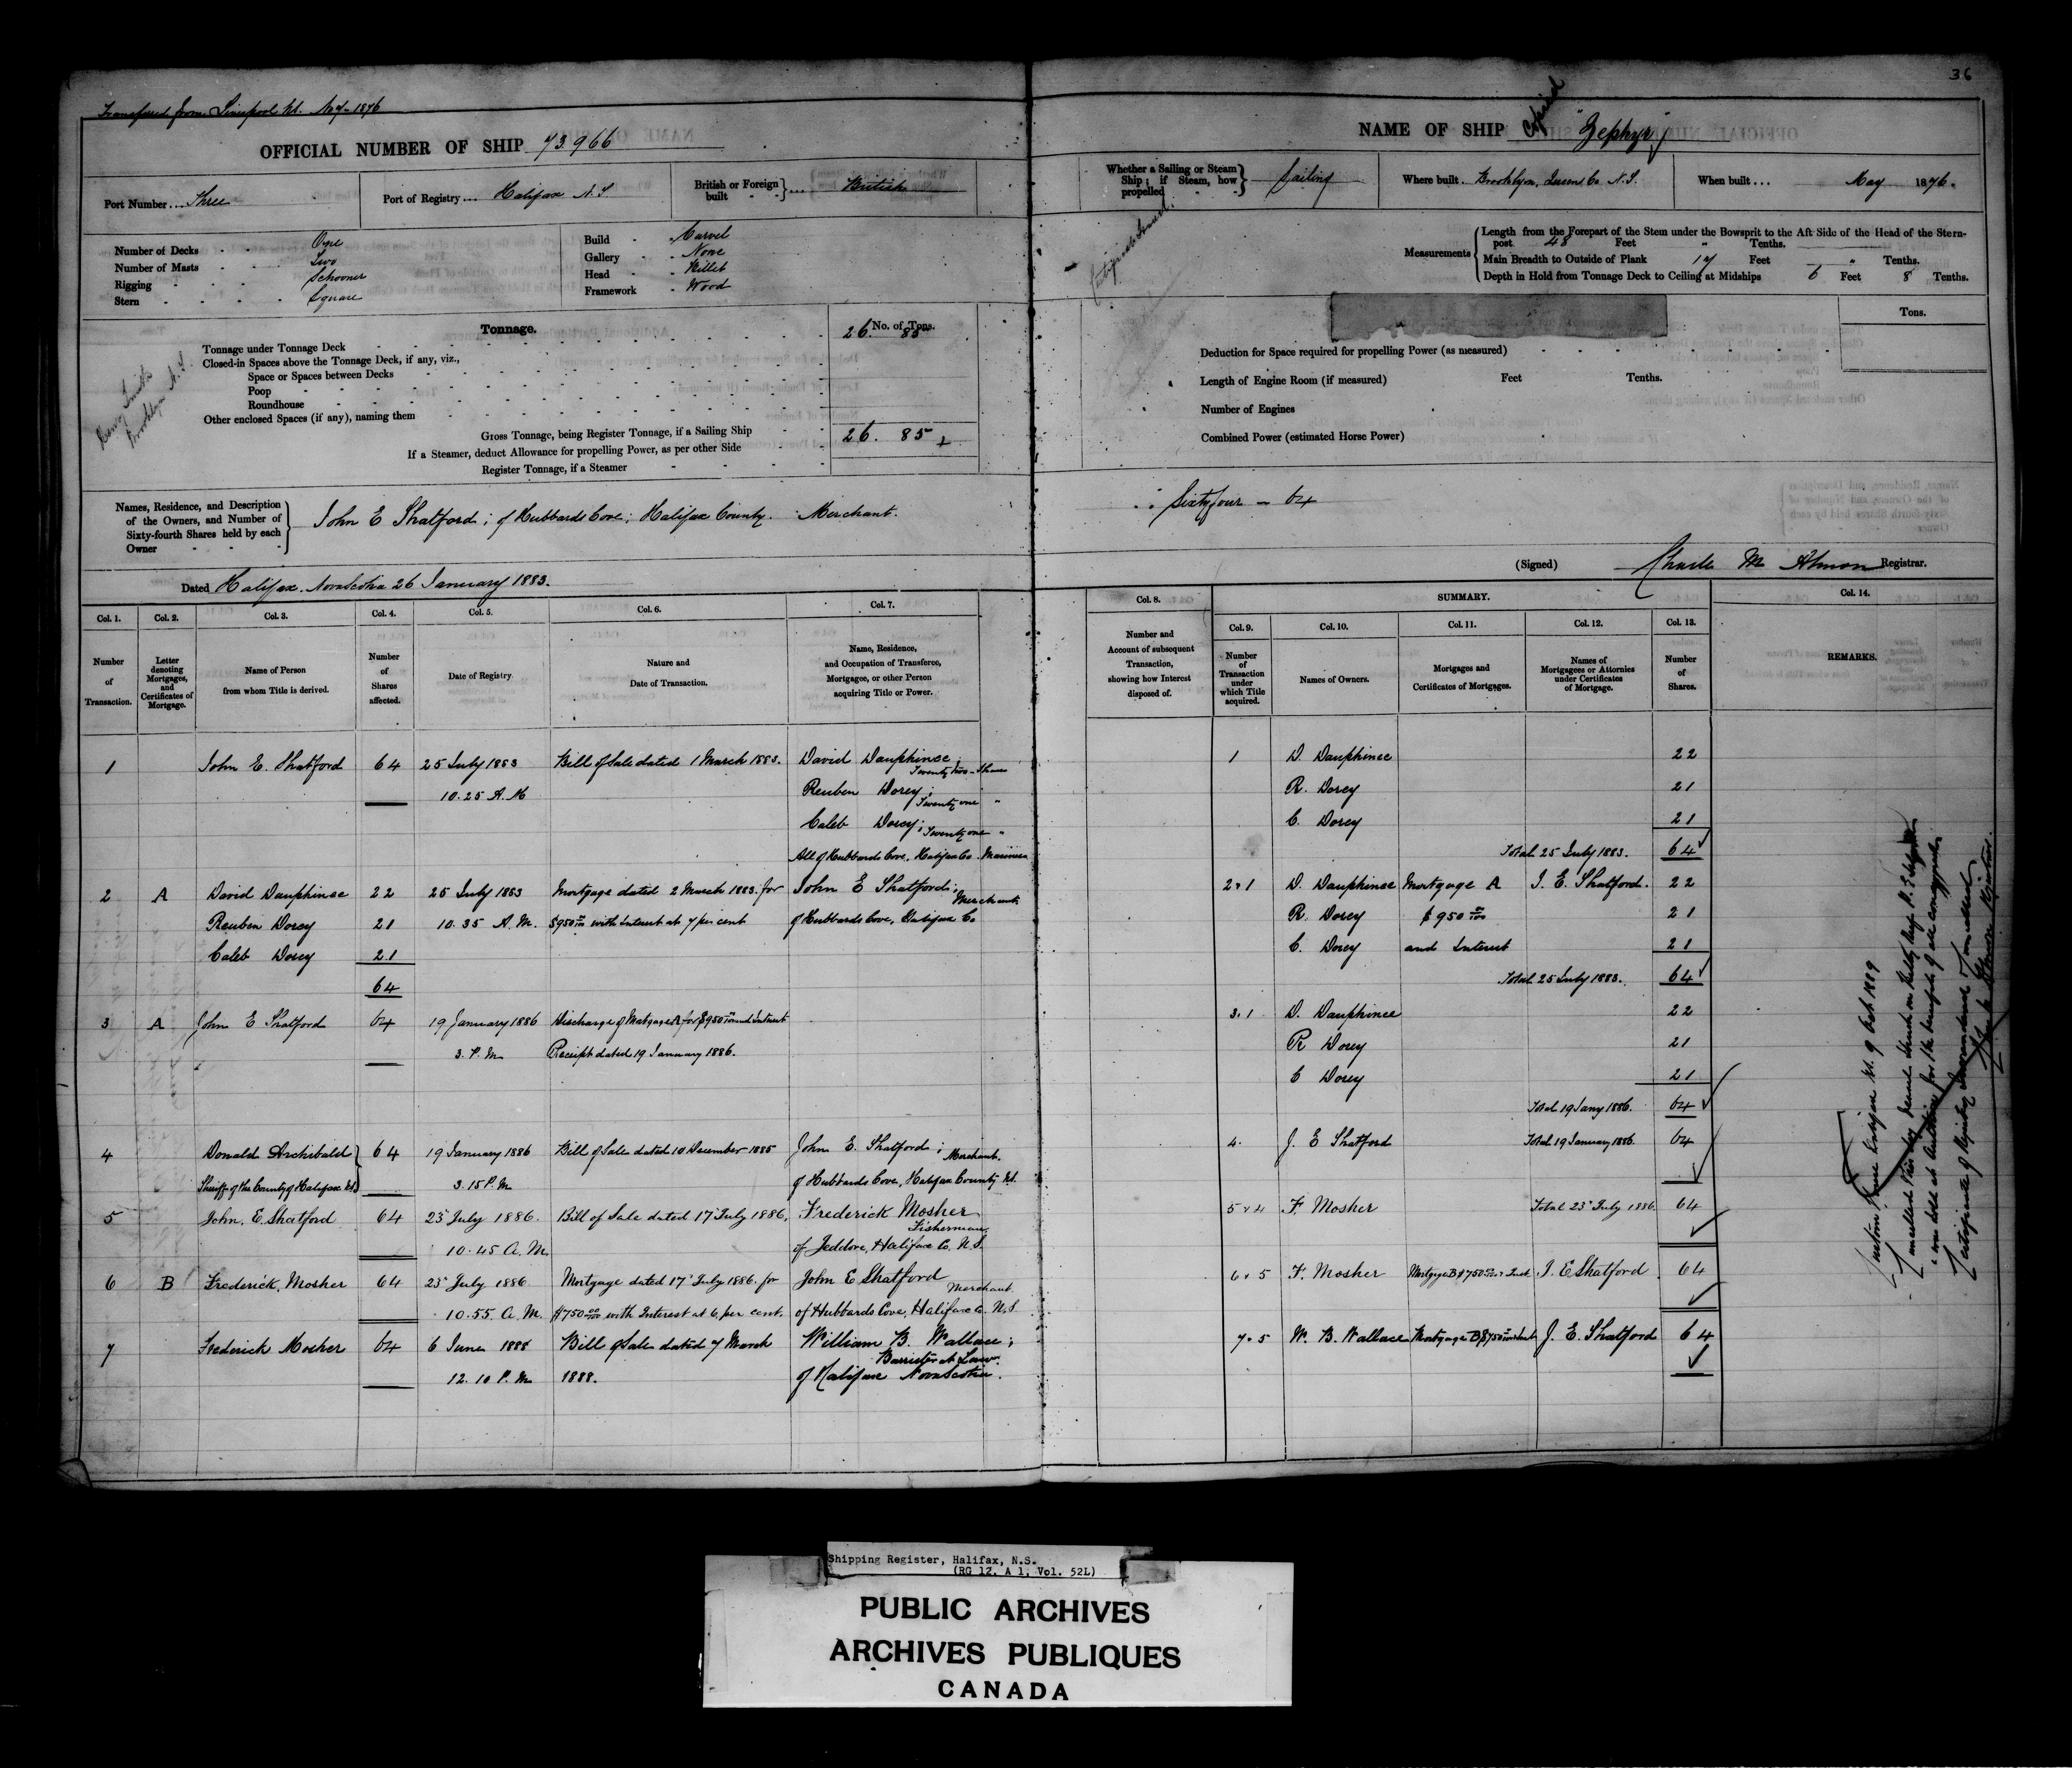 36
Transferred from Liverpool NS. No 7-1876
OFFICIAL NUMBER OF SHIP 73966
Port Number ... Three
Port of Registry ... Halifax N.S.
British or Foreign built } ... British
Number of Decks - - One
Number of Masts - - Two
Rigging - - - Schooner
Stern - - - - Square
Build - - Carvel
Gallery - - None
Head - - Billet
Framework - Wood
Tonnage.
No. of Tons.
Tonnage under Tonnage Deck 26. 85
Closed-in Spaces above the Tonnage Deck, if any, viz.,
Space or Spaces between Decks
Poop
Roundhouse
Other enclosed Spaces (if any), naming them
Gross Tonnage, being Register Tonnage, if a Sailing Ship 26. 85
If a Steamer, deduct Allowance for propelling Power, as per other Side
Register Tonnage, if a Steamer
Smith
Brooklyn N.S.
Names, Residence, and Description of the Owners, and Number of Sixty-fourth Shares held by each Owner
John E Shatford; of Hubbards Cove; Halifax County. Merchant.
Dated Halifax. Nova Scotia 26 January 1883.
Col. 1. Col. 2. Col. 3. Col. 4. Col. 5. Col. 6. Col. 7.
Number of Transaction.
Letter denoting Mortgages, and Certificates of Mortgage.
Name of Person from whom Title is derived.
Number of Shares affected.
Date of Registry
Nature and Date of Transaction.
Name, Residence, and Occupation of Transferee, Mortgagee, or other Person acquiring Title or Power.
1 John E. Shatford 64 25 July 1883 Bill of Sale dated 1 March 1883. David Dauphinee; Twenty two - Shares
10.25 A.M Reuben Dorey; Twenty one "
Caleb Dorey; Twenty one "
All of Hubbards Cove, Halifax Co. Mariners
2 A David Dauphinee 22 25 July 1883 Mortgage dated 2 March 1883. for John E Shatford; Merchant
Reuben Dorey 21 10.35 A.M. $950 00/100 with Interest at 7 per cent of Hubbards Cove, Halifax Co
Caleb Dorey 21
64
3 A John E Shatford 64 19 January 1886 Discharge of Mortgage A for $950 00/100 and Interest
3. P.M Receipt dated 19 January 1886.
4 Donald Archibald 64 19 January 1886 Bill of Sale dated 10 December 1885 John E. Shatford; Merchant.
Sheriff of the County of Halifax NS 3.15 P.M of Hubbards Cove, Halifax County NS.
5 John. E. Shatford 64 23 July 1886. Bill of Sale dated 17 July 1886, Frederick Mosher
Fisherman
10.45 A.M. of Jeddore, Halifax Co. N.S.
6 B Frederick. Mosher 64 23 July 1886 Mortgage dated 17 July 1886. for John E Shatford
Merchant
10.55. A.M. $750 00/100 with Interest at 6. per cent. of Hubbards Cove, Halifax Co. N.S
7 Frederick Mosher 64 6 June 1888 Bill of Sale dated 7 March William B. Wallace;
Barrister at Law.
12.10 P.M 1888. of Halifax Nova Scotia.
NAME OF SHIP "Zephyr"
Copied
Whether a Sailing or Steam Ship; if Steam, how propelled } Sailing
Where built. Brooklyn, Queens Co. N.S.
When built ... May 1876.
Measurements
Length from the Forepart of the Stem under the Bowsprit to the Aft Side of the Head of the Stern-
post 48 Feet " Tenths.
Main Breadth to Outside of Plank 17 Feet " Tenths.
Depth in Hold from Tonnage Deck to Ceiling at Midships 6 Feet 8 Tenths.
Tons.
Deduction for Space required for propelling Power (as measured)
Length of Engine Room (if measured) Feet Tenths.
Number of Engines
Combined Power (estimated Horse Power)
Sixty four - 64
(Signed) Charles M Almon Registrar.
Col. 8. SUMMARY. Col. 14.
Col. 9. Col. 10. Col. 11. Col. 12. Col. 13.
Number and Account of subsequent Transaction, showing how Interest disposed of.
Number of Transaction under which Title acquired.
Names of Owners.
Mortgages and Certificates of Mortgages.
Names of Mortgagees or Attornies under Certificates of Mortgage.
Number of Shares.
REMARKS.
1 D. Dauphinee 22
R. Dorey 21
C. Dorey 21
Total 25 July 1883. 64
2 v 1 D. Dauphinee Mortgage A J. E. Shatford. 22
R. Dorey $950 00/100 21
C. Dorey and Interest 21
Total 25 July 1883. 64
3. 1 D. Dauphinee 22
R Dorey 21
C Dorey 21
Total 19 Jany 1886. 64
4. J. E Shatford Total 19 January 1886 64
5 v 4 F Mosher Total 23 July 1886 64
6 v 5 F. Mosher Mortgage B $750 00/100 & Int J. E Shatford 64
7 v 5 W. B. Wallace Mortgage B $750 00/100 & Int J. E. Shatford 64
Shipping Register, Halifax, N.S.
(RG 12, A 1, Vol. 52L)
PUBLIC ARCHIVES
ARCHIVES PUBLIQUES
CANADA